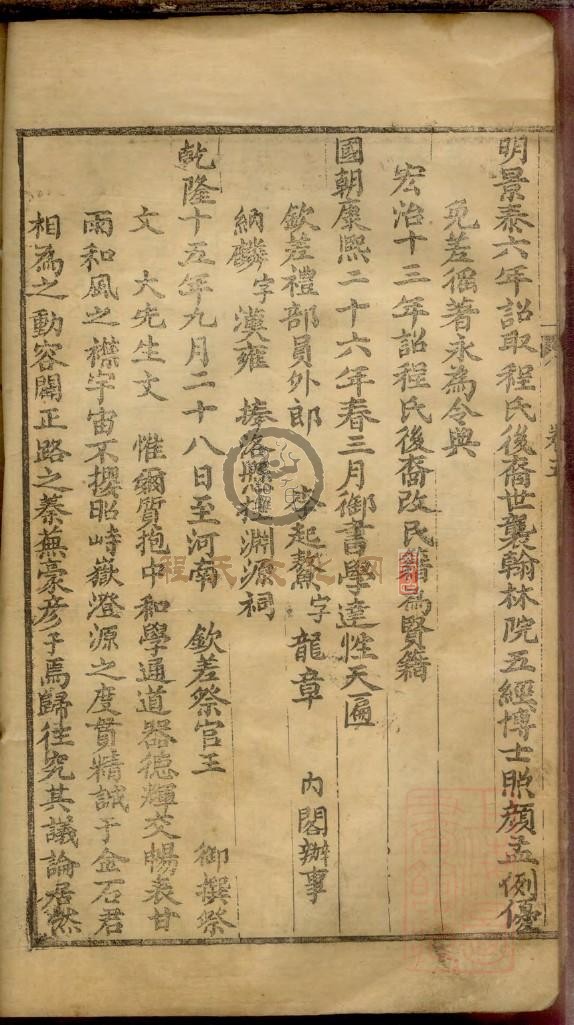 明景泰六年詔取程氏後裔世襲翰林院五經博士照顏孟例優
免差徭著永為令典
宏治十三年詔程氏後裔改民籍爲賢籍
國朝康熙二十六年春三月御書學達性天匾
欽差禮部員外郎 李起龍字龍章 內閣辦事
納麟字漢雍 捧洛懸挂淵源祠
乾隆十五年九月二十八日至河南 欽差祭官王 御撰祭
文 大先生文 惟爾質抱中和學通道器德輝交暢表甘
雨和風之襟宇宙不攖昭峙嶽澄源之度貫精誠于金石君
相為之動容闢正路之蓁蕪豪彦于焉歸往究其議論居然
卷五
程氏文之網